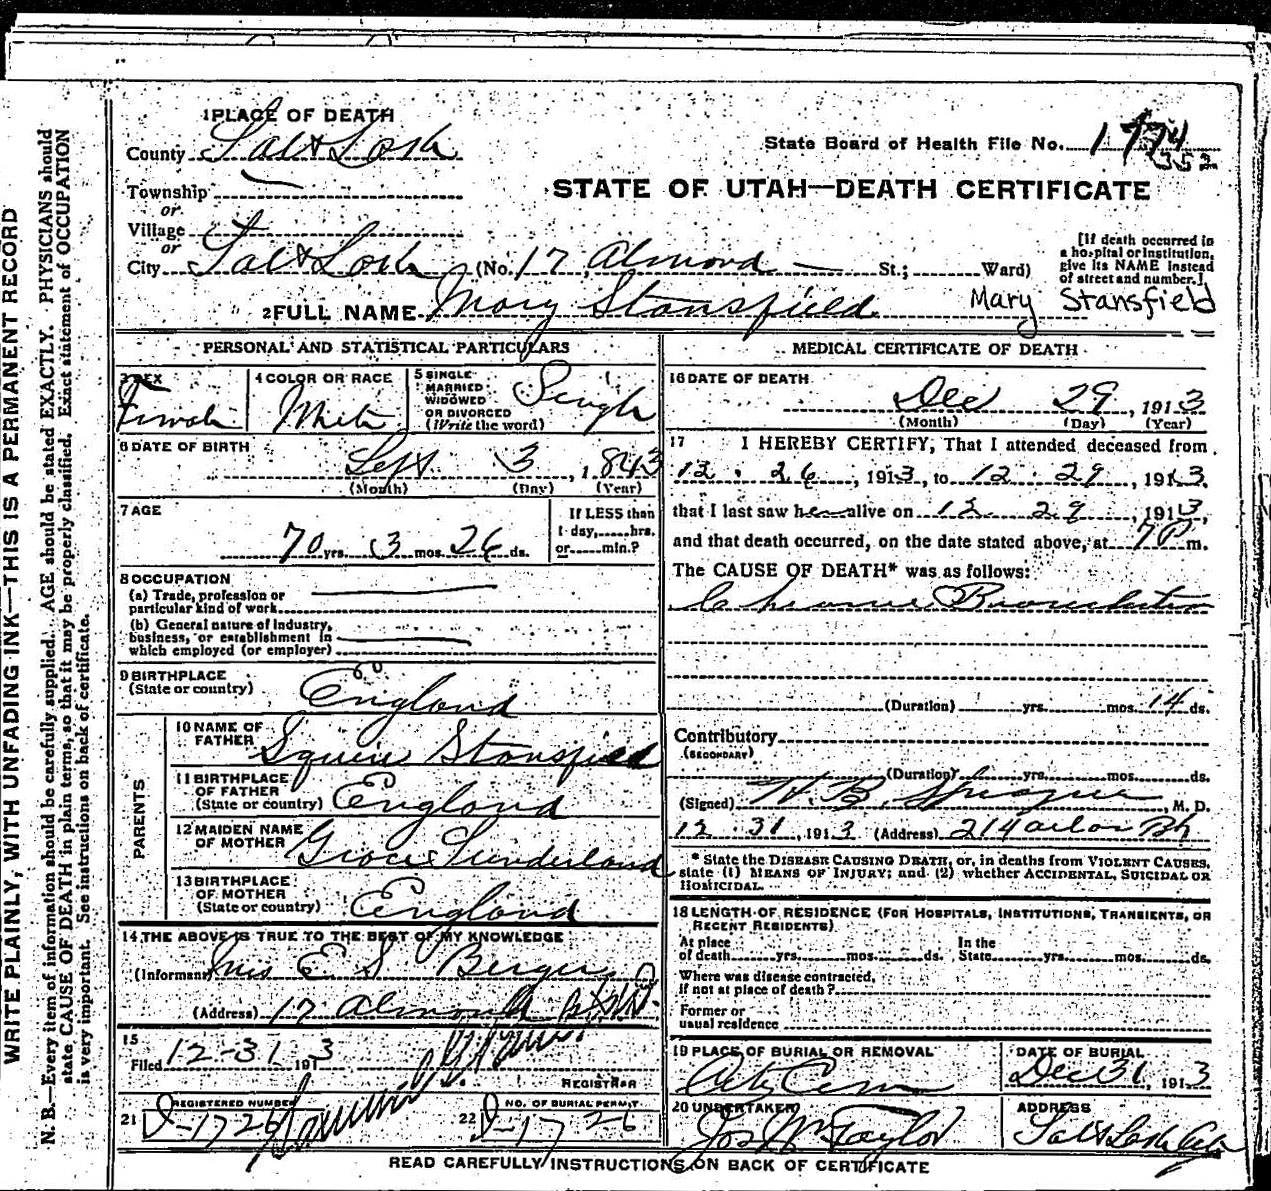 WRITE PLAINLY, WITH UNFADING INK—THIS IS A PERMANENT RECORD
N. B.—Every item of information should be carefully supplied. AGE should be stated EXACTLY. PHYSICIANS should
state CAUSE OF DEATH in plain terms, so that it may be properly classified. Exact statement of OCCUPATION
is very important. See instructions on back of certificate.
1 PLACE OF DEATH
County Salt Lake
State Board of Health File No. 1774
352
Township
or
Village
or
STATE OF UTAH—DEATH CERTIFICATE
City Salt Lake (No. 17 Almond St.; Ward)
[If death occurred in
a hospital or institution,
give its NAME instead
of street and number.]
2 FULL NAME Mary Stansfield
Mary Stansfield
PERSONAL AND STATISTICAL PARTICULARS
3 SEX
Female
4 COLOR OR RACE
White
5 SINGLE
MARRIED
WIDOWED
OR DIVORCED
(Write the word)
Single
6 DATE OF BIRTH
Sept 3, 1843
(Month) (Day) (Year)
7 AGE
70 yrs. 3 mos. 26 ds.
If LESS than
1 day, hrs.
or min.?
8 OCCUPATION
(a) Trade, profession or
particular kind of work
(b) General nature of industry,
business, or establishment in
which employed (or employer)
9 BIRTHPLACE
(State or country)
England
PARENTS
10 NAME OF
FATHER
Squire Stansfield
11 BIRTHPLACE
OF FATHER
(State or country)
England
12 MAIDEN NAME
OF MOTHER
Grace Sunderland
13 BIRTHPLACE
OF MOTHER
(State or country)
England
14 THE ABOVE IS TRUE TO THE BEST OF MY KNOWLEDGE
(Informant) Mrs E S Berger
(Address) 17 Almond
15
Filed 12-31 1913
REGISTRAR
21 REGISTERED NUMBER
D-1726
22 NO. OF BURIAL PERMIT
D-1726
MEDICAL CERTIFICATE OF DEATH
16 DATE OF DEATH
Dec 29, 1913
(Month) (Day) (Year)
17 I HEREBY CERTIFY, That I attended deceased from
12. 26, 1913, to 12. 29, 1913.
that I last saw her alive on 12 29, 1913,
and that death occurred, on the date stated above, at 7 P m.
The CAUSE OF DEATH* was as follows:
(Duration) yrs. mos. 14 ds.
Contributory
(SECONDARY)
(Duration) yrs. mos. ds.
(Signed) H. B. Sprague, M. D.
12. 31, 1913 (Address) 214
* State the DISEASE CAUSING DEATH, or, in deaths from VIOLENT CAUSES,
state (1) MEANS OF INJURY; and (2) whether ACCIDENTAL, SUICIDAL OR
HOMICIDAL.
18 LENGTH OF RESIDENCE (FOR HOSPITALS, INSTITUTIONS, TRANSIENTS, OR
RECENT RESIDENTS)
At place
of death yrs. mos. ds.
In the
State yrs. mos. ds.
Where was disease contracted,
if not at place of death?
Former or
usual residence
19 PLACE OF BURIAL OR REMOVAL
City Cem
DATE OF BURIAL
Dec 31, 1913
20 UNDERTAKER
Jos Wm Taylor
ADDRESS
Salt Lake City
READ CAREFULLY INSTRUCTIONS ON BACK OF CERTIFICATE